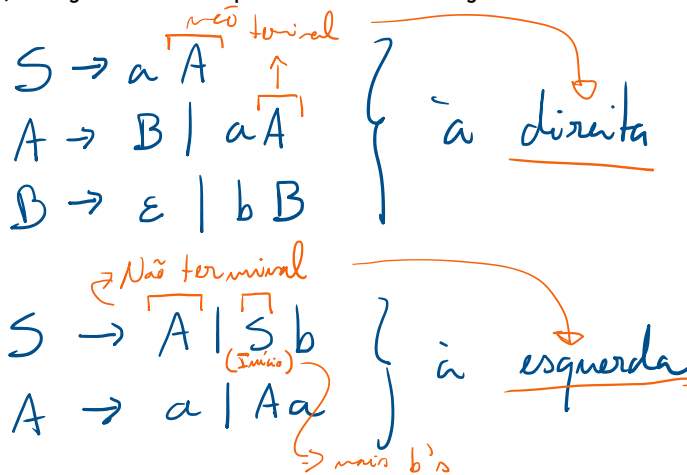 não terminal
S → a A
A → B | a A
B → ε | b B
à direita
Não terminal
S → A | S b
(Início)
A → a | A a
à esquerda
⇒ mais b's